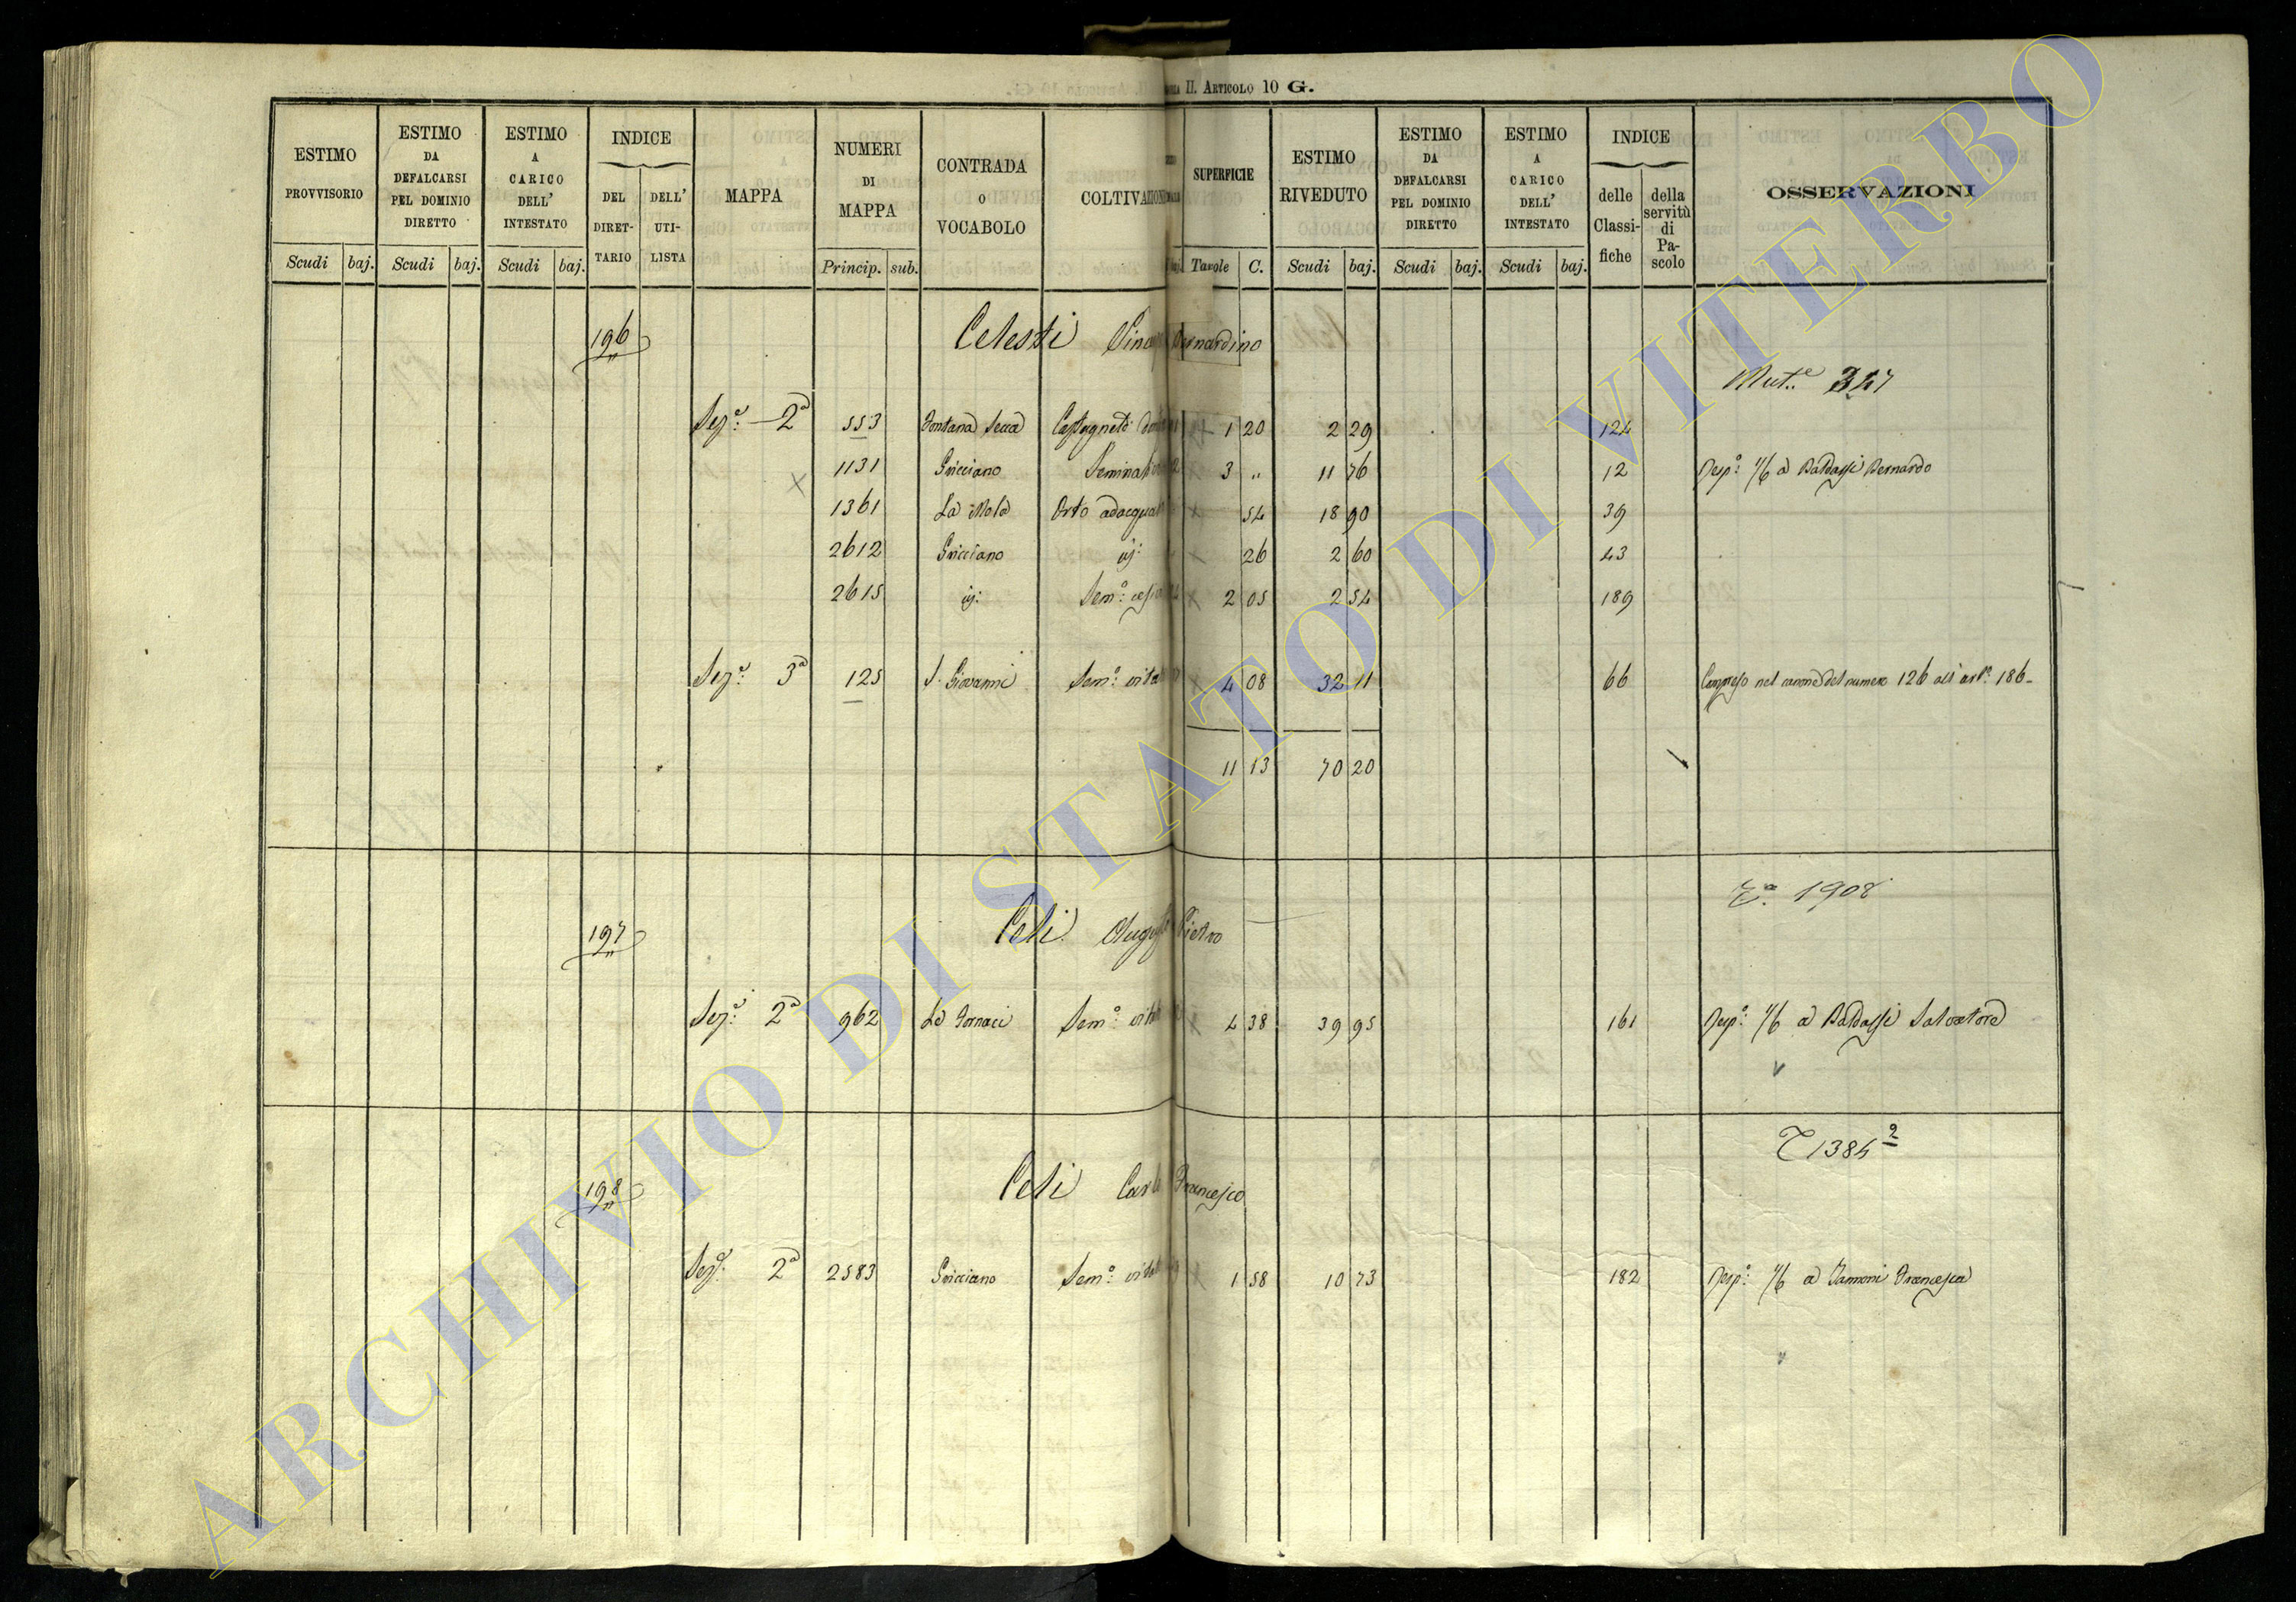 II. ARTICOLO 10 G.
ESTIMO PROVVISORIO
ESTIMO DA DEFALCARSI PEL DOMINIO DIRETTO
ESTIMO A CARICO DELL' INTESTATO
INDICE
DEL DIRET- TARIO
DELL' UTI- LISTA
MAPPA
NUMERI DI MAPPA
CONTRADA O VOCABOLO
COLTIVAZIONE
SUPERFICIE
ESTIMO RIVEDUTO
ESTIMO DA DEFALCARSI PEL DOMINIO DIRETTO
ESTIMO A CARICO DELL' INTESTATO
INDICE
delle Classi- fiche
della servitù di Pa- scolo
OSSERVAZIONI
Scudi baj. Scudi baj. Scudi baj. Princip. sub. Tavole C. Scudi baj. Scudi baj. Scudi baj.
196 Celesti Bernardino
Mut.e 347
Sez.e 2a 553 Fontana Secca Castagneto 1 20 2 29 124
1131 Gricciano 3 " 11 76 12 Resp.o 1/6 a Baldassi Bernardo
1361 La Mola Orto 54 18 90 39
2612 Gricciano id: 26 2 60 43
2615 id: Sem.o 2 05 2 54 189
Sez.e 3a 125 S. Giovanni Sem.o vitato 4 08 32 11 66 Compreso nel canone del numero 126 all'art.o 186
11 13 70 20
T.a 1908
197 Celi Pietro
Sez.e 2a 962 Le Fornaci Sem.o 4 38 39 95 161 Resp.o 1/6 a Baldassi Salvatore
T 1384 2
198 Celi Carlo Francesco
Sez.e 2a 2583 Gricciano Sem.o 1 58 10 73 182 Resp.o 1/6 a Francesca
ARCHIVIO DI STATO DI VITERBO